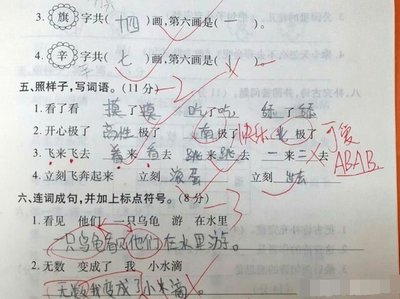 3.(旗)字共(十四)画,第六画是(一)。
4.(辛)字共(七)画,第六画是(、)。
五、照样子,写词语。(11分) -2
1.看了看 摸了摸 吃了吃
2.开心极了 高性极了 南极了 快乐 极了 可爱
3.飞来飞去 着来着去 跳来跳去 一来二去 ABAB.
4.立刻飞奔起来 立刻滚蛋 立刻出去
六、连词成句,并加上标点符号。(8分) -3
1.看见 他们 一只乌龟 游 在水里
一只乌龟看见他们在水里游。
2.无数 变成了 我 小水滴
无数我变成了小水滴